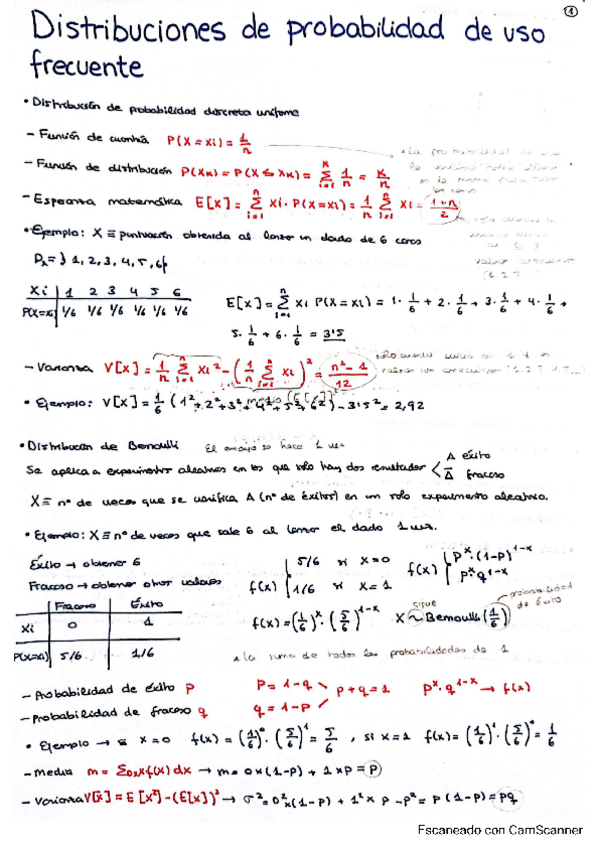 1
Distribuciones de probabilidad de uso
frecuente
• Distribución de probabilidad discreta uniforme
- Función de cuantía P(X = xi) = 1/n
- Función de distribución P(Xk) = P(X ≤ Xk) = Σ(i=1, k) 1/n = k/n
- Esperanza matemática E[X] = Σ(i=1, n) xi · P(X = xi) = 1/n Σ(i=1, n) xi = (1+n)/2
• Ejemplo: X ≡ puntuación obtenida al lanzar un dado de 6 caras
Dx = { 1, 2, 3, 4, 5, 6 }
Xi | 1 2 3 4 5 6
P(X=xi) | 1/6 1/6 1/6 1/6 1/6 1/6
E[X] = Σ(i=1, n) xi P(X = xi) = 1 · 1/6 + 2 · 1/6 + 3 · 1/6 + 4 · 1/6 +
5 · 1/6 + 6 · 1/6 = 3'5
- Varianza V[X] = 1/n Σ(i=1, n) xi² - (1/n Σ(i=1, n) xi)² = (n² - 1)/12
• Ejemplo: V[X] = 1/6 (1² + 2² + 3² + 4² + 5² + 6²) - 3'5² = 2,92
• Distribución de Bernoulli El ensayo se hace 1 vez
Se aplica a experimentos aleatorios en los que solo hay dos resultados < A éxito
Ā fracaso
X ≡ nº de veces que se verifica A (nº de éxitos) en un solo experimento aleatorio.
• Ejemplo: X ≡ nº de veces que sale 6 al lanzar el dado 1 vez.
Éxito → obtener 6
Fracaso → obtener otros valores
f(x) { 5/6 si x=0
1/6 si x=1
f(x) { p^x · (1-p)^1-x
p^x · q^1-x
| Fracaso | Éxito
Xi | 0 | 1
P(X=xi) | 5/6 | 1/6
f(x) = (1/6)^x · (5/6)^1-x X ~ Bernoulli (1/6)
sigue
probabilidad de éxito
la suma de todas las probabilidades da 1
- Probabilidad de éxito p p = 1-q
- Probabilidad de fracaso q q = 1-p
p + q = 1 p^x · q^1-x → f(x)
• Ejemplo → si x=0 f(x) = (1/6)^0 · (5/6)^1 = 5/6 , si x=1 f(x) = (1/6)^1 · (5/6)^0 = 1/6
- media m = Σ x f(x) dx → m = 0 x (1-p) + 1 x p = p
- Varianza V[X] = E[X²] - (E[X])² → σ² = 0² x (1-p) + 1² x p - p² = p (1-p) = pq
Escaneado con CamScanner